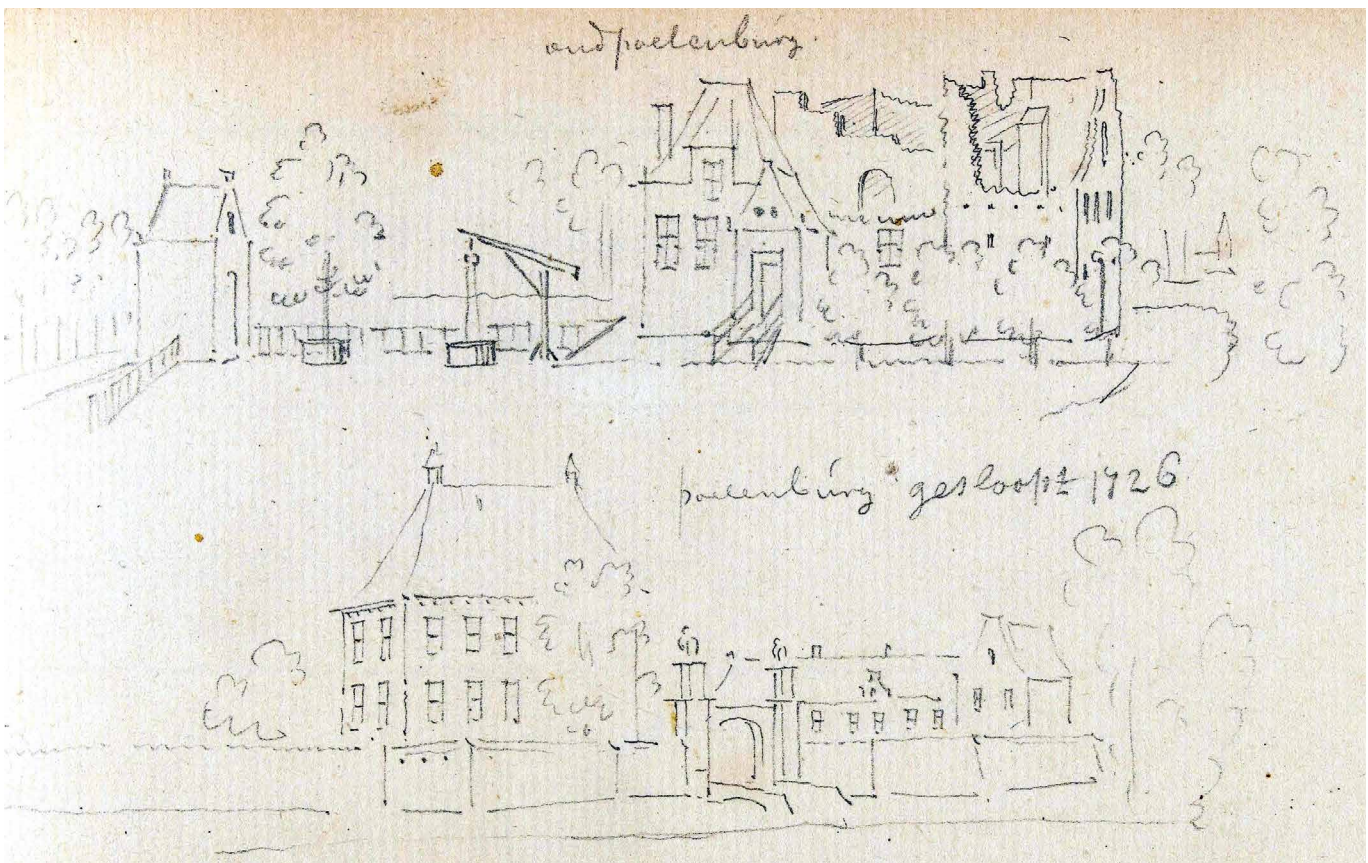 oud poelenburg.
poelenburg gesloopt 1726